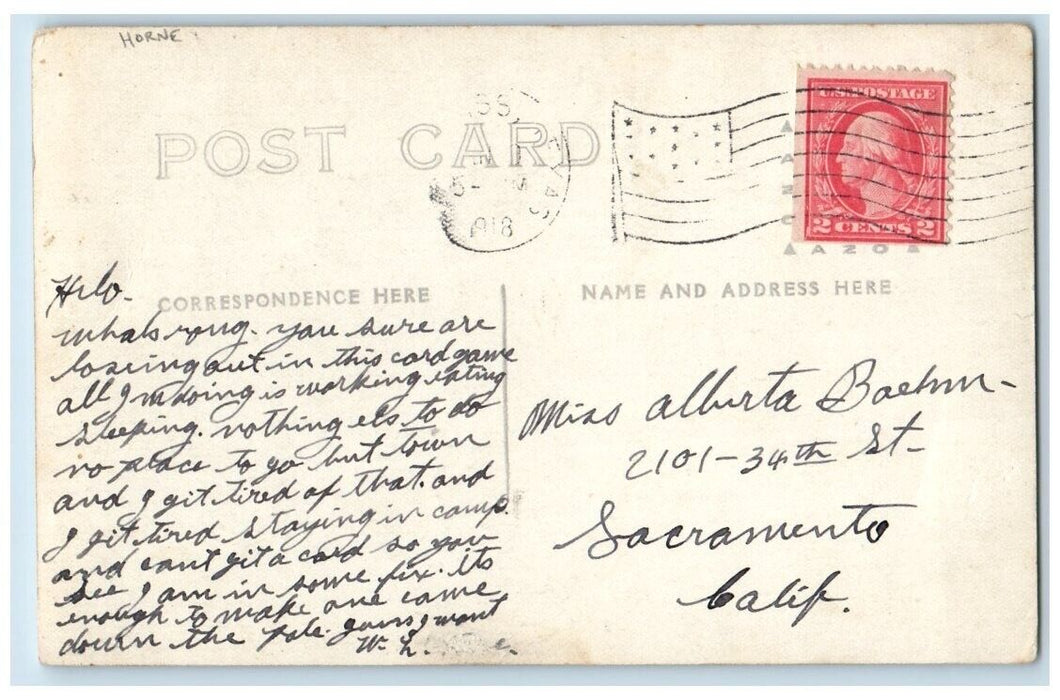 HORNE
POST CARD
SS, TEXAS
5 - M
1918
U.S. POSTAGE
2 CENTS 2
AZO
CORRESPONDENCE HERE
NAME AND ADDRESS HERE
Helo.
whats rong. you sure are
loseing out in this card game
all I'm doing is working eating
sleeping. nothing els to do
no place to go but town
and I git tired of that. and
I git tired staying in camp.
and cant git a card so you
see I am in some fix. its
enough to make one came
down the pole. guess I wont
W. L.
Miss Alberta Boehm-
2101-34th St-
Sacramento
Calif.